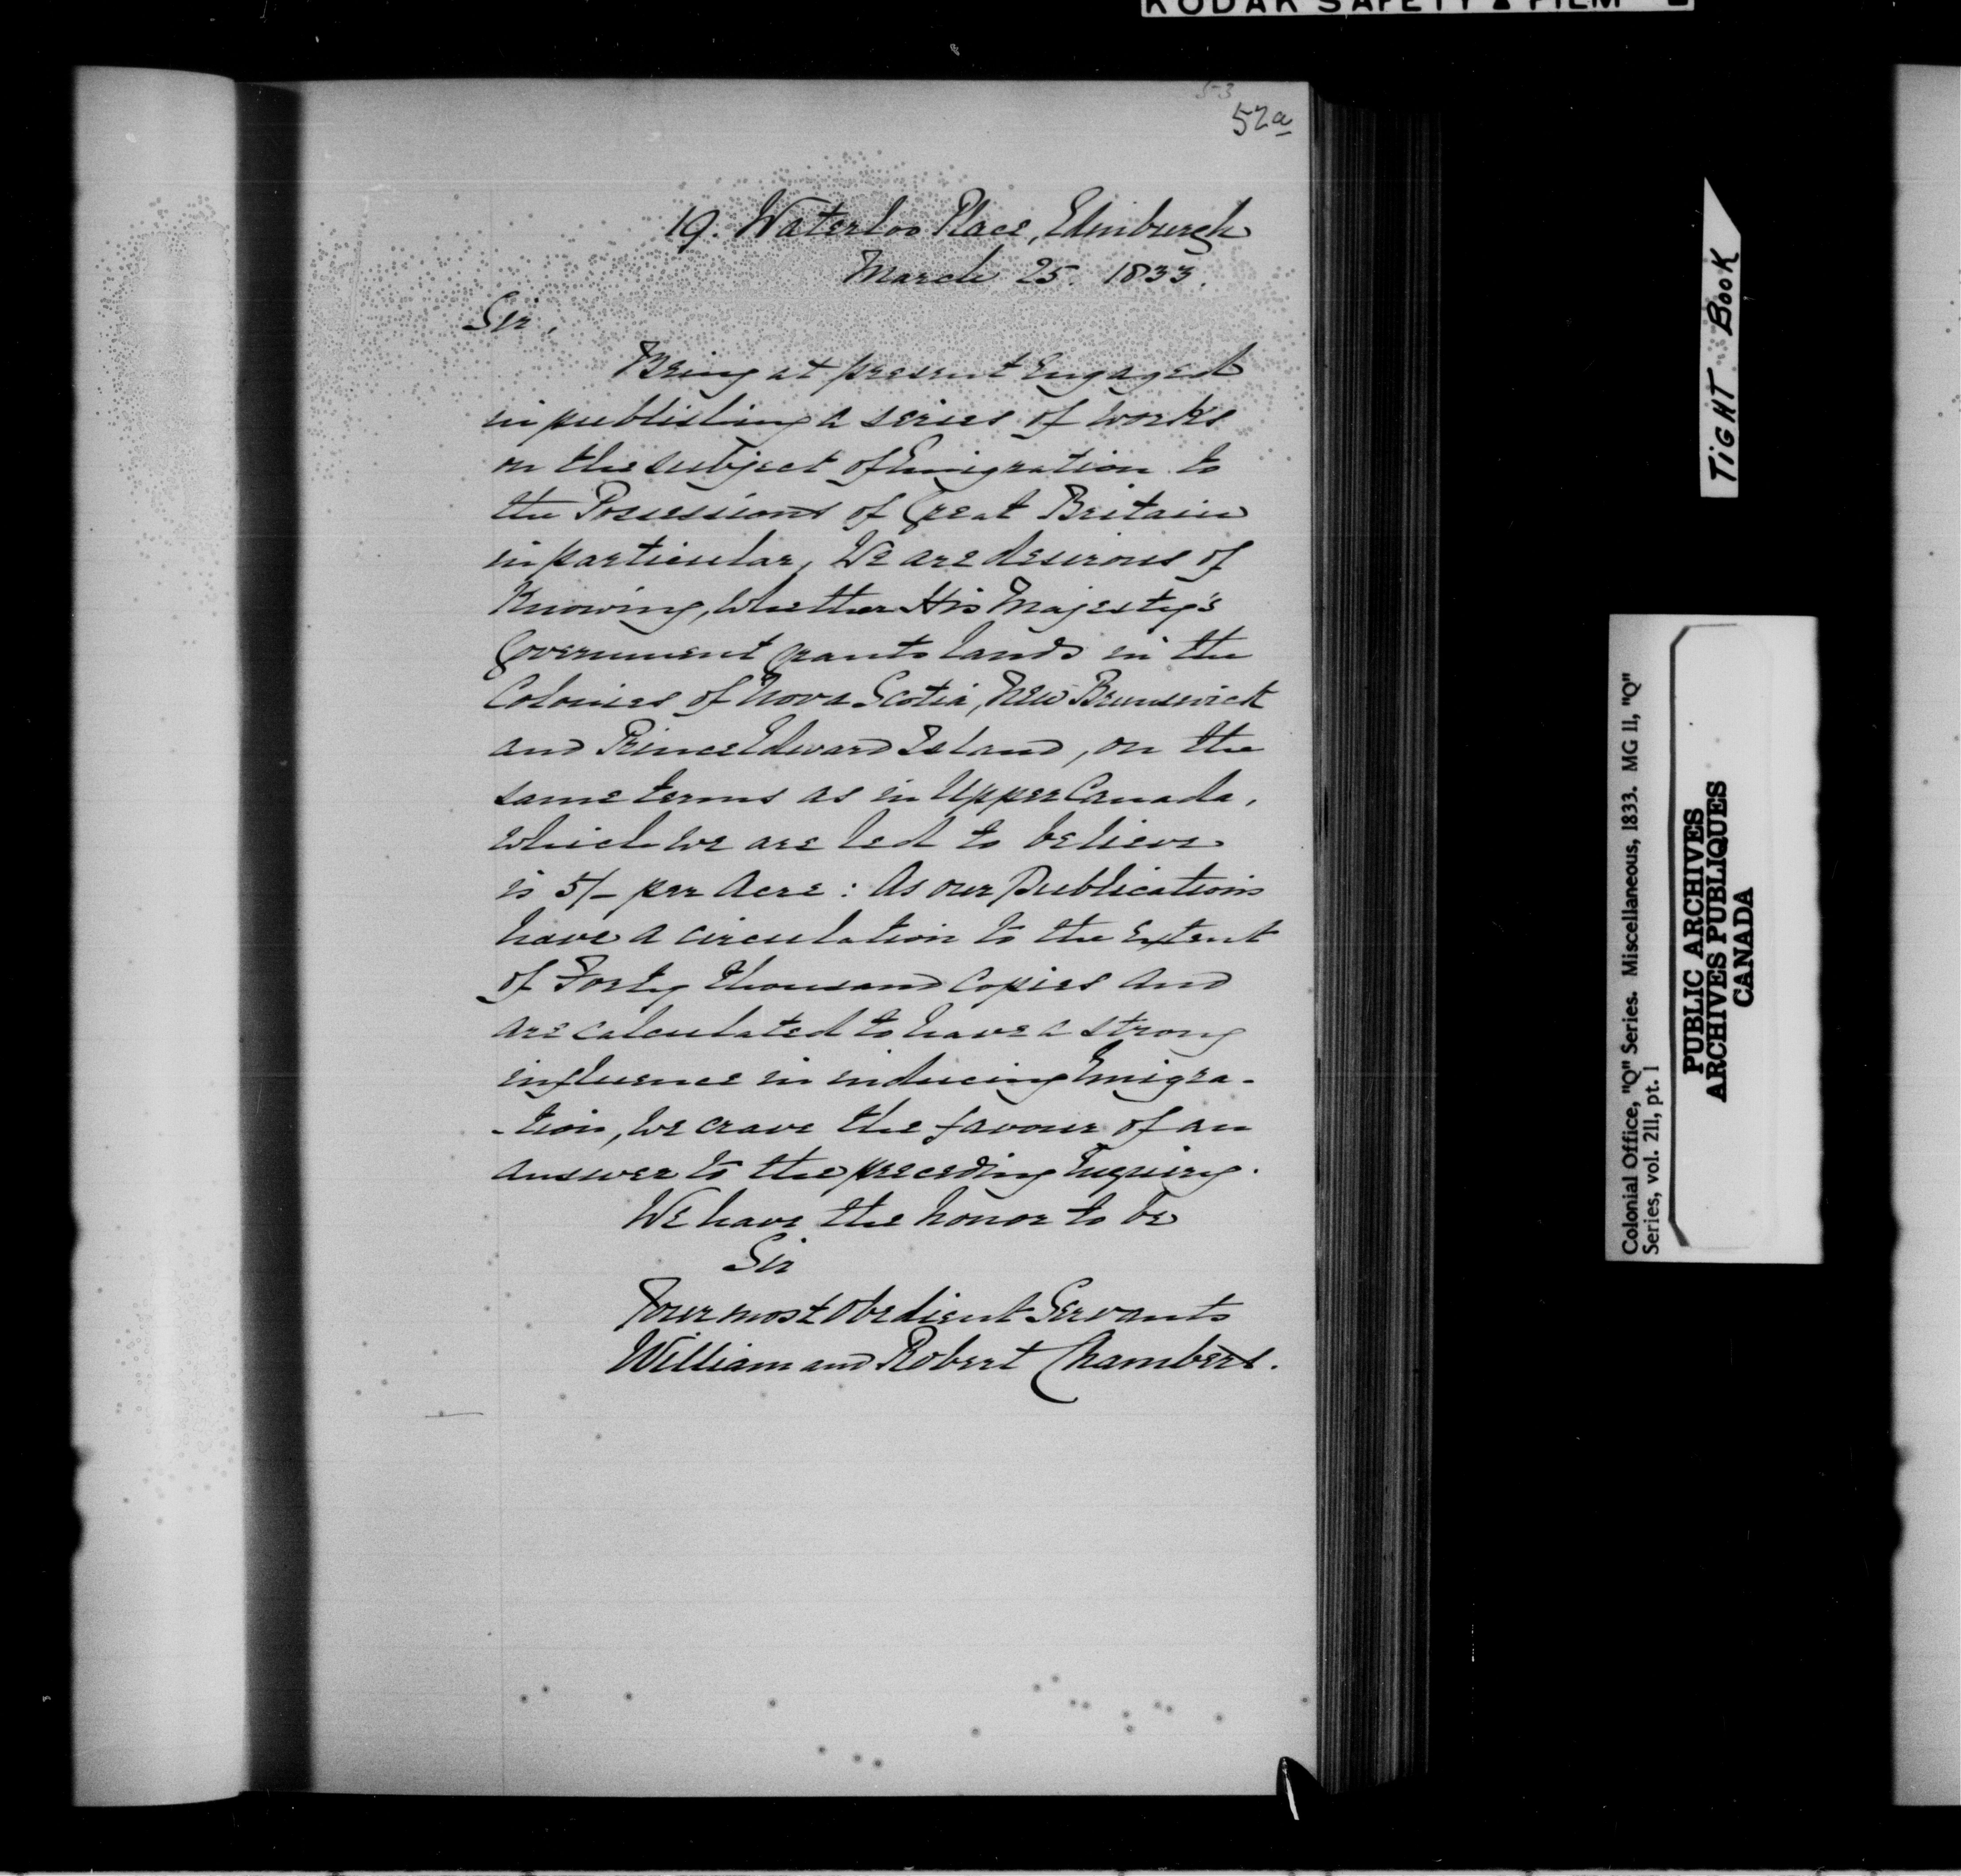 KODAK SAFETY FILM
53
52a
19. Waterloo Place, Edinburgh
March 25. 1833.
Sir,
Being at present Engaged
in publishing a series of works
on the subject of Emigration to
the Possessions of Great Britain
in particular, We are desirous of
Knowing, whether His Majesty's
Government grants lands in the
Colonies of Nova Scotia, New Brunswick
and Prince Edward Island, on the
same terms as in Upper Canada,
which we are led to believe
is 5/- per Acre: As our Publications
have a circulation to the Extent
of Forty thousand Copies and
are calculated to have a strong
influence in inducing Emigra-
-tion, we crave the favour of an
answer to the preceding Enquiry.
We have the honor to be
Sir
Your most obedient Servants
William and Robert Chambers.
TIGHT BOOK
Colonial Office, "Q" Series. Miscellaneous, 1833. MG 11, "Q"
Series, vol. 211, pt. 1
PUBLIC ARCHIVES
ARCHIVES PUBLIQUES
CANADA